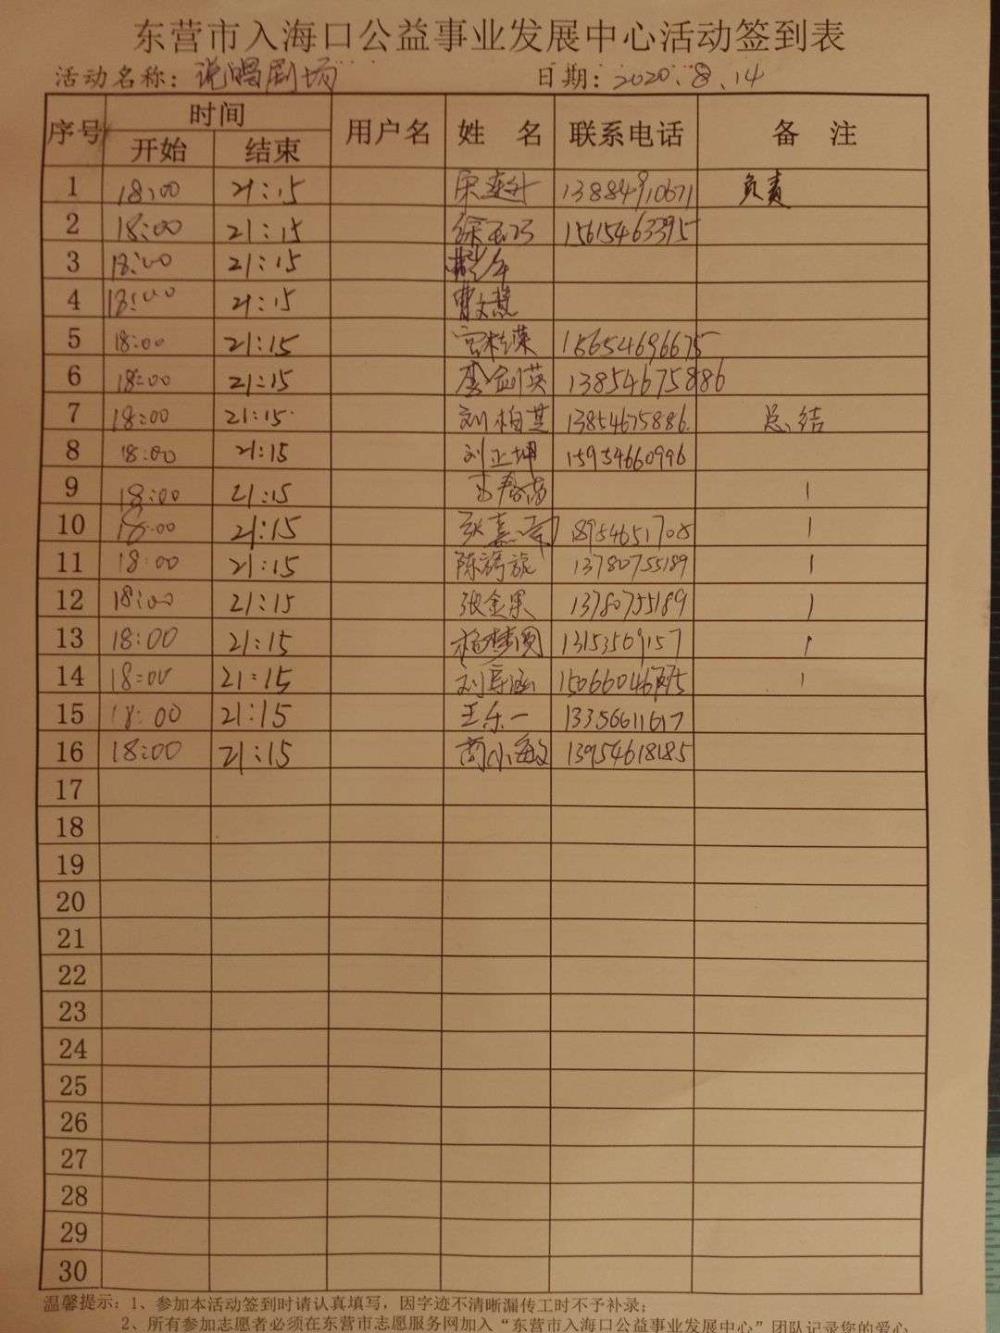 东营市入海口公益事业发展中心活动签到表
活动名称：说唱剧场 日期：2020.8.14
序号 时间 用户名 姓 名 联系电话 备 注
开始 结束
1 18:00 21:15 13884910671 负责
2 18:00 21:15 徐玉巧 15615463395
3 18:00 21:15
4 18:00 21:15 曹文慧
5 18:00 21:15 15654696675
6 18:00 21:15 李剑英 13854675886
7 18:00 21:15 刘柏萁 13854675886. 总结
8 18:00 21:15 刘正坤 15954660996
9 18:00 21:15 1
10 18:00 21:15 张嘉 18954651708 1
11 18:00 21:15 13780755189 1
12 18:00 21:15 张金果 13780755189 1
13 18:00 21:15 杨梦圆 13153509157 1
14 18:00 21:15 1
15 18:00 21:15 王乐一 13356611617
16 18:00 21:15 商小敏 13954618185
17
18
19
20
21
22
23
24
25
26
27
28
29
30
温馨提示：1、参加本活动签到时请认真填写，因字迹不清晰漏传工时不予补录；
2、所有参加志愿者必须在东营市志愿服务网加入“东营市入海口公益事业发展中心”团队记录您的爱心